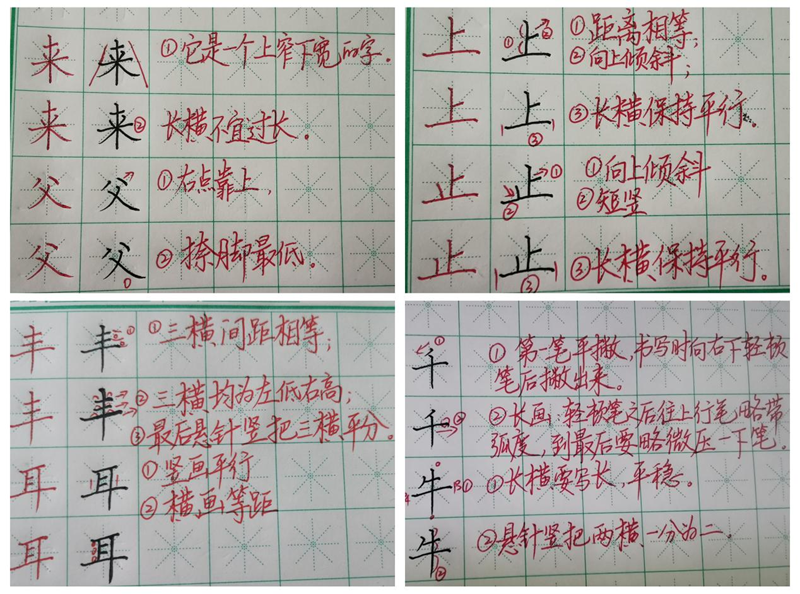 来 来 ①它是一个上窄下宽的字.
来 来② 长横不宜过长。
父 父 ①右点靠上,
父 父 ②捺脚最低。
上 上 ①距离相等;
②向上倾斜;
上 上 ③长横保持平行。
止 止 ①向上倾斜
②短竖
止 止 ③长横保持平行。
丰 丰 ①三横间距相等;
丰 丰 ②三横均为左低右高;
③最后悬针竖把三横平分。
耳 耳 ①竖画平行
耳 耳 ②横画等距
千 ①第一笔平撇,书写时向右下轻顿
笔后撇出来。
千 ②长画:轻顿笔之后往上行笔略带
弧度,到最后要略微压一下笔.
牛 ①长横要写长,平稳。
牛 ②悬针竖把两横一分为二.